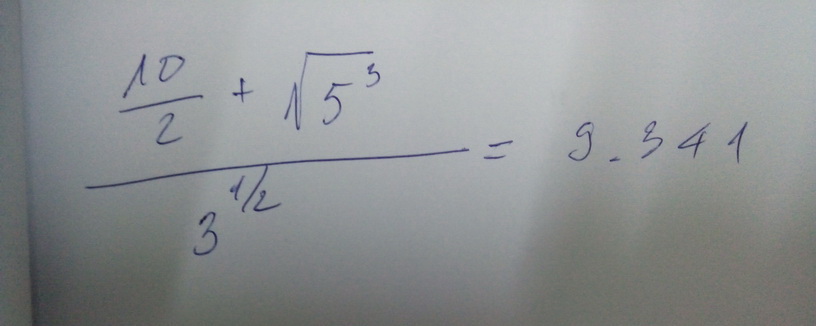 \frac{\frac{10}{2} + \sqrt{5^3}}{3^{1/2}} = 9.341